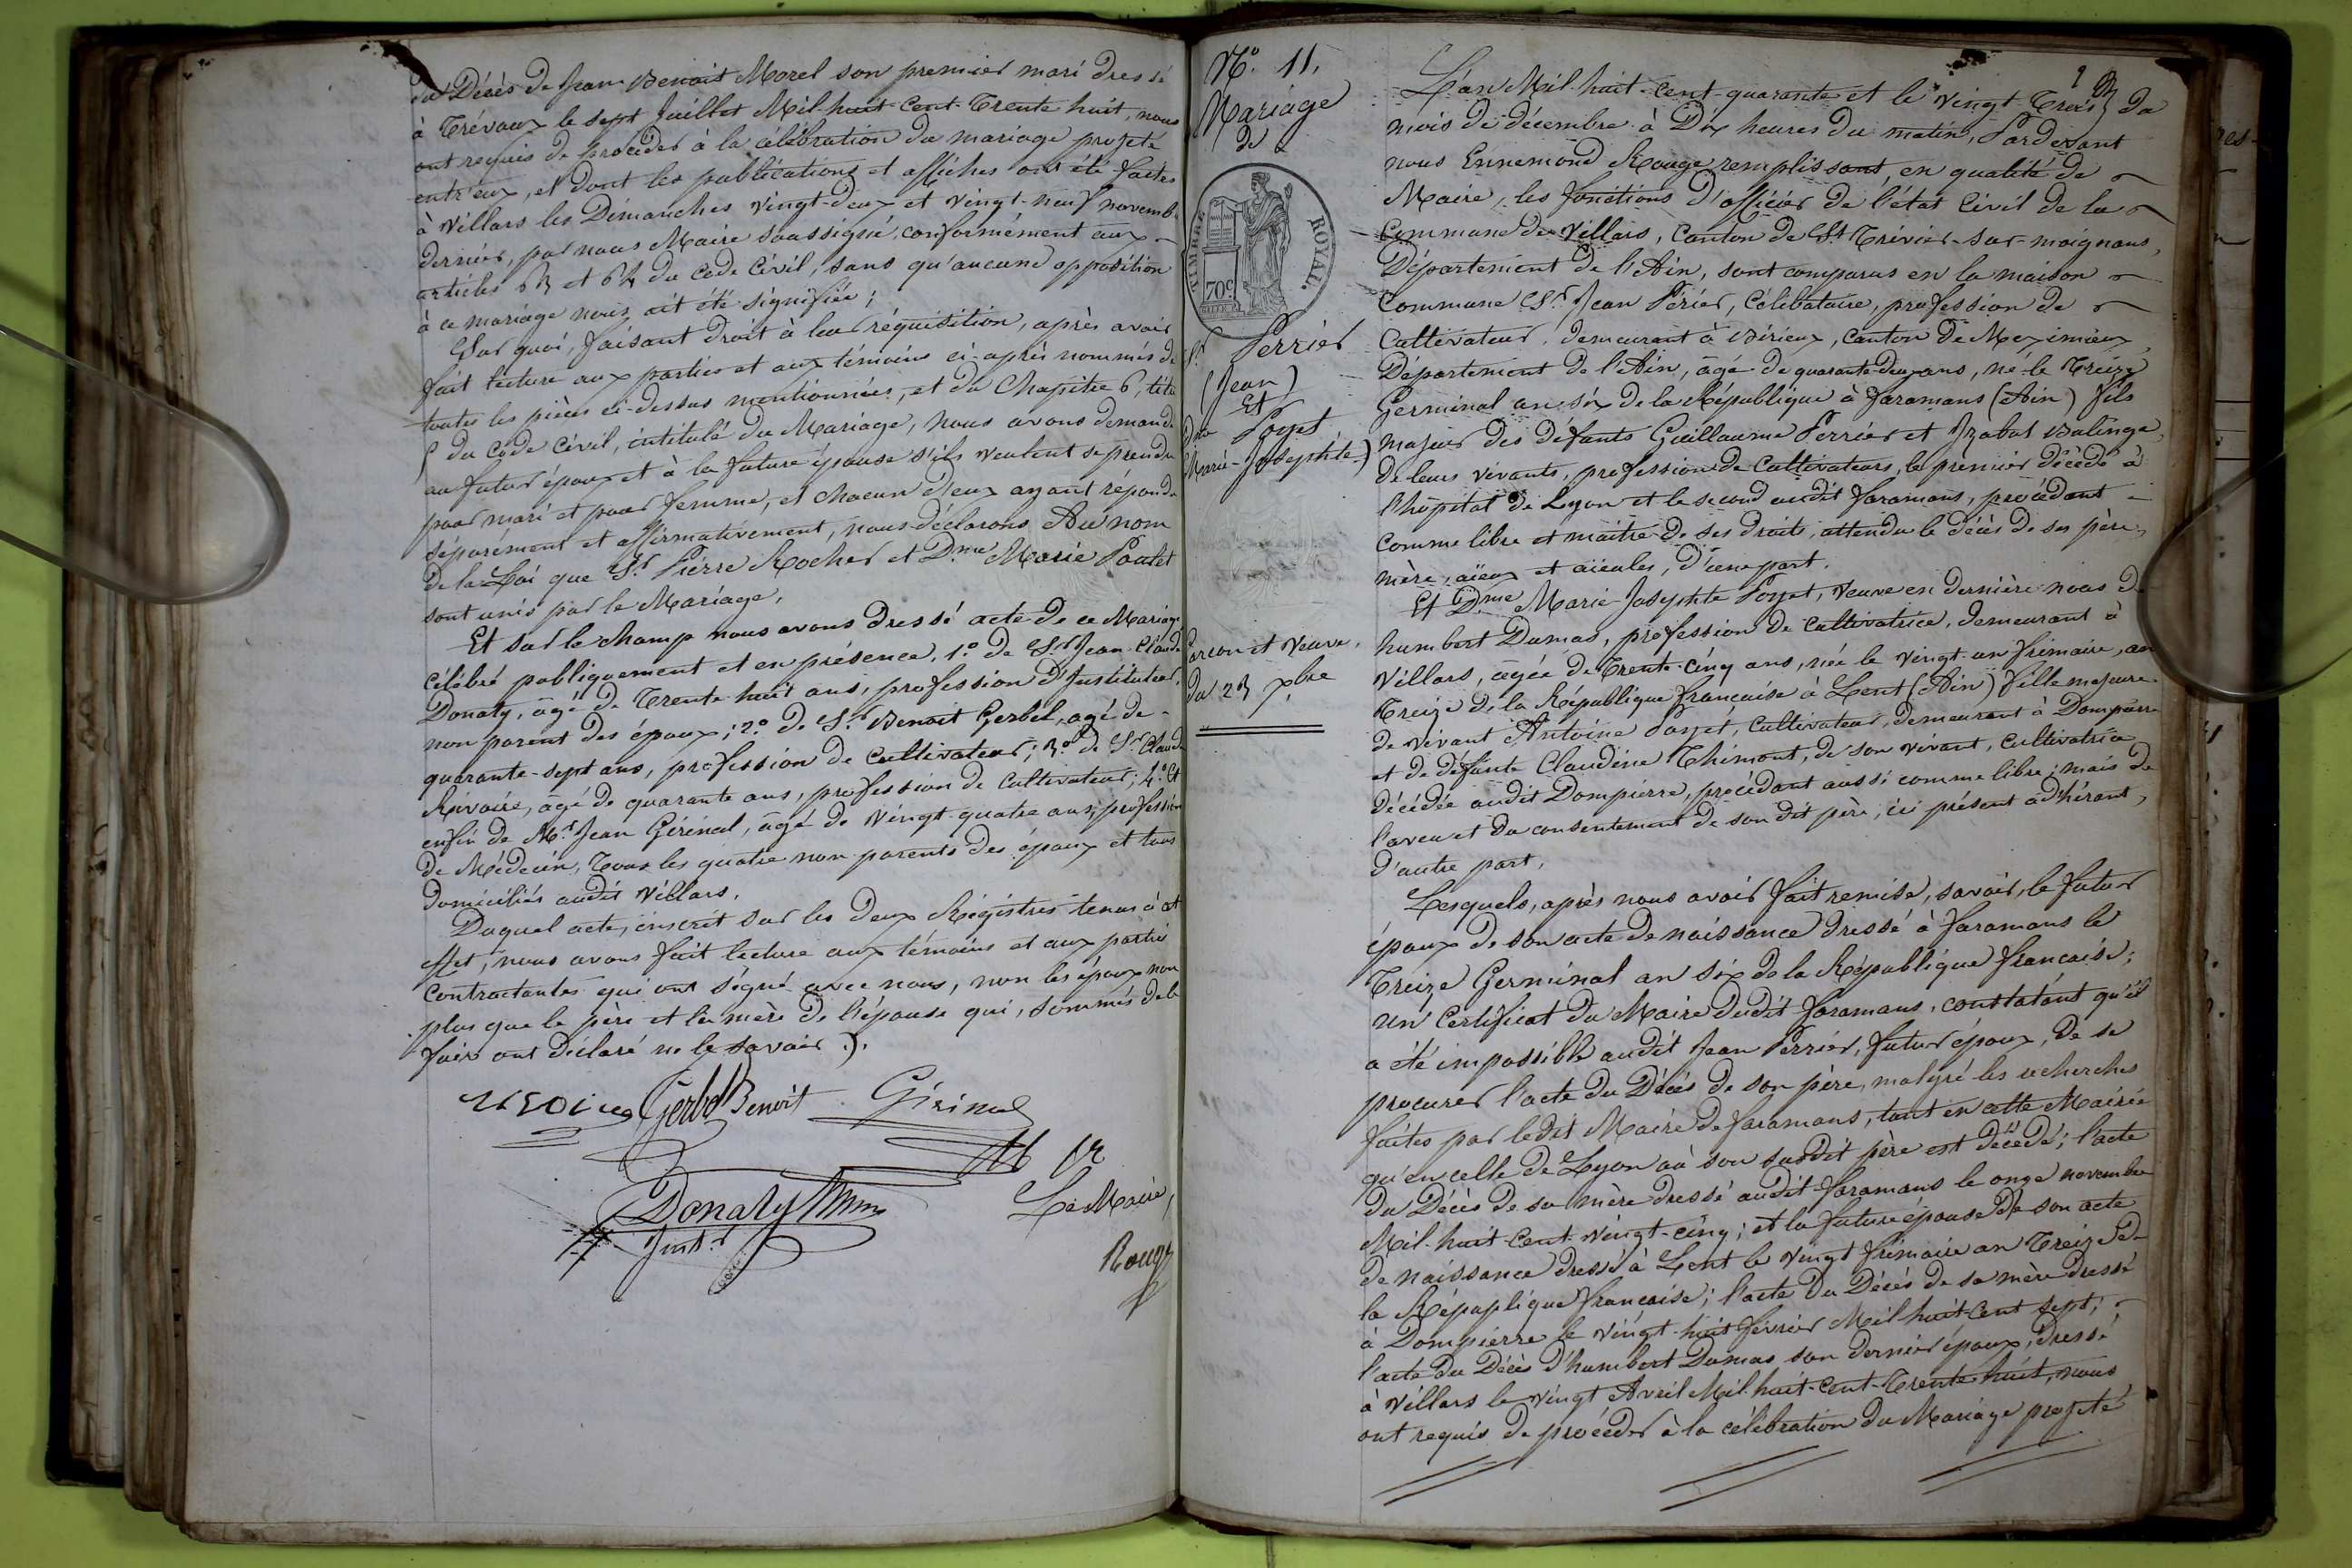 du Décès de Jean-Benoit Morel son premier mari dressé
à Trévoux le sept Juillet Mil-huit-Cent-Trente huit, nous
ont requis de procéder à la célébration du mariage projeté
entr'eux, et dont les publications et affiches ont été faites
à Villars les Dimanches vingt-deux et vingt-neuf novembre
dernier, par nous Maire soussigné, conformément aux
articles 63 et 64 du Code Civil, sans qu'aucune opposition
à ce mariage nous ait été signifiée ;
Sur quoi, faisant droit à leur réquisition, après avoir
fait lecture aux parties et aux témoins ci-après nommés de
toutes les pièces ci-dessus mentionnées, et du Chapitre 6, titre
5 du Code Civil, intitulé du Mariage, nous avons demandé
au futur époux et à la future épouse s'ils veulent se prendre
pour mari et pour femme, et chacun d'eux ayant répondu
séparément et affirmativement, nous déclarons Au nom
de la Loi que Sr. Pierre Rocher et Dme Marie Poulet
sont unis par le Mariage.
Et sur le champ nous avons dressé acte de ce Mariage
célébré publiquement et en présence, 1.° de Sr. Jean-Claude
Donaty, âgé de Trente-huit ans, profession d'Instituteur,
non parent des époux ; 2.° de Sr. Benoit Gerbel, âgé de
quarante-sept ans, profession de Cultivateur ; 3.° de Sr. Claude
Rivoire, âgé de quarante ans, profession de Cultivateur ; 4.° Et
enfin de Mr. Jean Girinal, âgé de Vingt-quatre ans, profession
de Médecin, Tous les quatre non parents des époux et tous
domiciliés audit Villars.
Duquel acte, inscrit sur les deux Régistres tenus à cet
effet, nous avons fait lecture aux témoins et aux parties
contractantes qui ont signé avec nous, non les époux non
plus que le père et la mère de l'épouse qui, sommés de le
faire ont déclaré ne le savoir.
Gerbel Benoit Girinal
Donaty
Instr.
Le Maire,
Rouge
N.° 11.
Mariage
de
TIMBRE ROYAL.
70c
Sr Perrier
(Jean)
Et
Dme Poyet
(Marie-Josephte)
Garcon et Veuve.
du 23 Xbre
L'an Mil-huit-Cent-quarante et le Vingt-Trois du
mois de décembre à Dix heures du matin, Pardevant
nous Ennemond Rouge remplissant, en qualité de
Maire, les fonctions d'officier de l'état Civil de la
Commune de Villars, Canton de St Trivier-sur-moignans,
Département de l'Ain, sont comparus en la maison
Commune Sr. Jean Périer, Célibataire, profession de
Cultivateur, demeurant à Birieux, Canton de Meximieux
Département de l'Ain, âgé de quarante-deux ans, né le Treize
Germinal an six de la République à Faramans (Ain) fils
majeur des défunts Guillaume Perrier et Izabel Balinge,
de leurs vivants, profession de Cultivateurs, le premier décédé à
l'hôpital de Lyon et le second audit Faramans, procédant
comme libre et maître de ses droits, attendu le décès de ses père,
mère, aïeux et aïeules, d'une part.
Et Dme Marie-Josephte Poyet, Veuve en dernière noces de
humbert Dumas, profession de Cultivatrice, demeurant à
Villars, âgée de Trente-Cinq ans, née le Vingt-un frimaire, an
Treize de la République française à Lent (Ain) fille majeure
de Vivant Antoine Poyet, Cultivateur, demeurant à Dompierre
et de défunte Claudine Thimont, de son vivant, Cultivatrice
décédée audit Dompierre, procédant aussi comme libre ; mais de
l'aveu et du consentement de son dit père, ici présent adhérant,
d'autre part.
Lesquels, après nous avoir fait remise, savoir, le futur
époux de son acte de naissance dressé à Faramans le
Treize Germinal an six de la République française ;
un Certificat du Maire dudit Faramans, constatant qu'il
a été impossible audit Jean Perrier, futur époux, de se
procurer l'acte du Décès de son père, malgré les recherches
faites par ledit Maire de Faramans, tant en cette Mairie
qu'en celle de Lyon où son susdit père est décédé ; l'acte
du Décès de sa mère dressé audit Faramans le onze novembre
Mil-huit-Cent-Vingt-Cinq ; et la future épouse de son acte
de naissance dressé à Lent le Vingt frimaire an Treize de
la Répuplique française ; l'acte du Décès de sa mère dressé
à Dompierre le Vingt-huit février Mil-huit-Cent sept ;
l'acte du Décès d'humbert Dumas son dernier époux, dressé
à Villars le Vingt Avril Mil-huit-Cent-Trente huit, nous
ont requis de procéder à la célébration du Mariage projeté